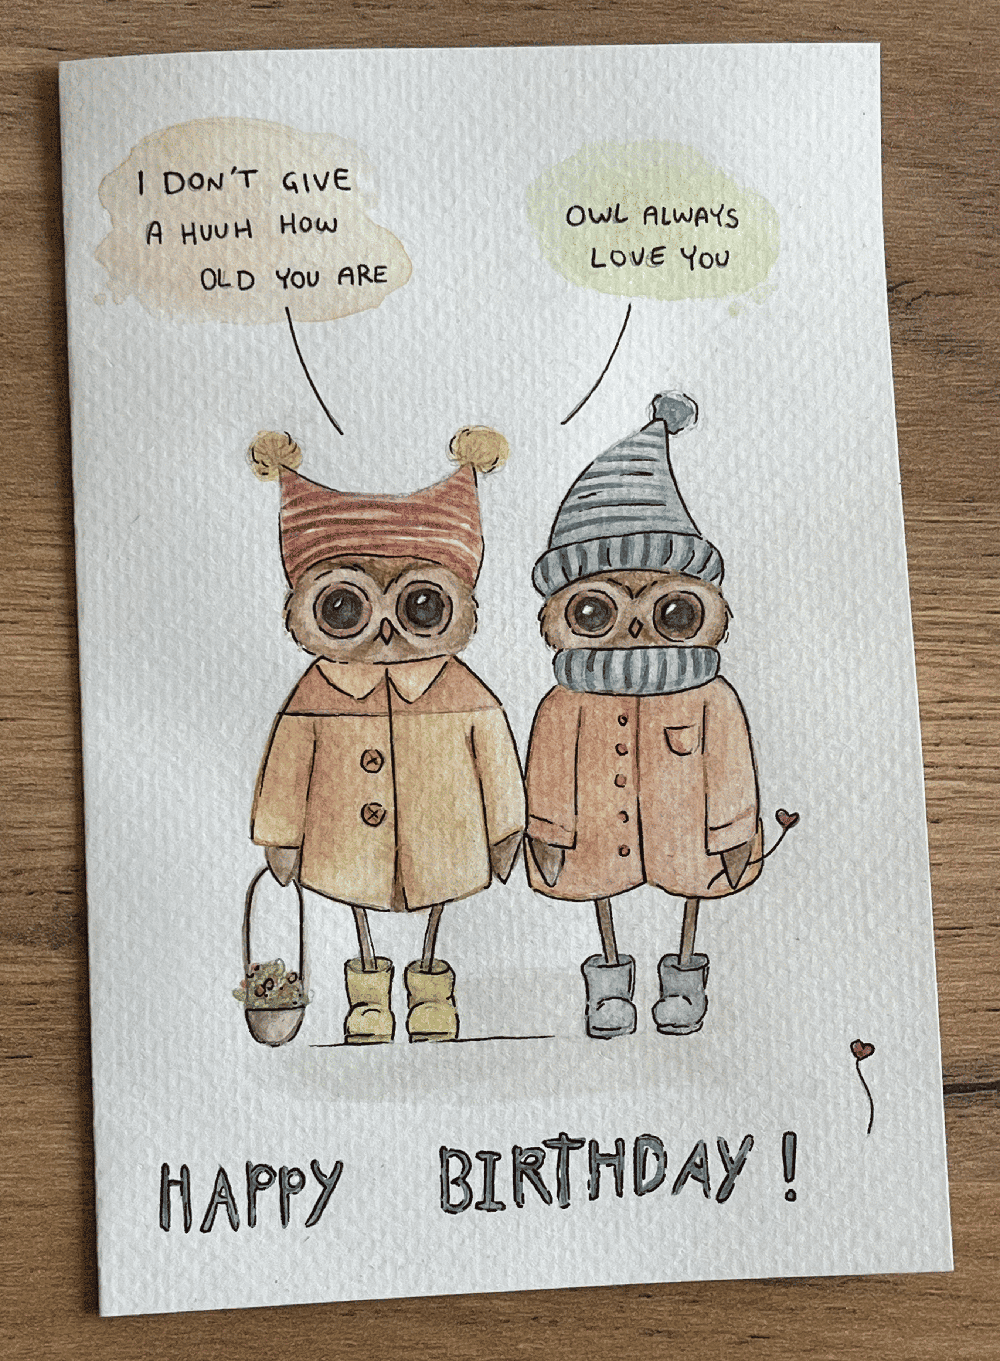 I DON'T GIVE
A HUUH HOW
OLD YOU ARE
OWL ALWAYS
LOVE YOU
HAPPY BIRTHDAY!